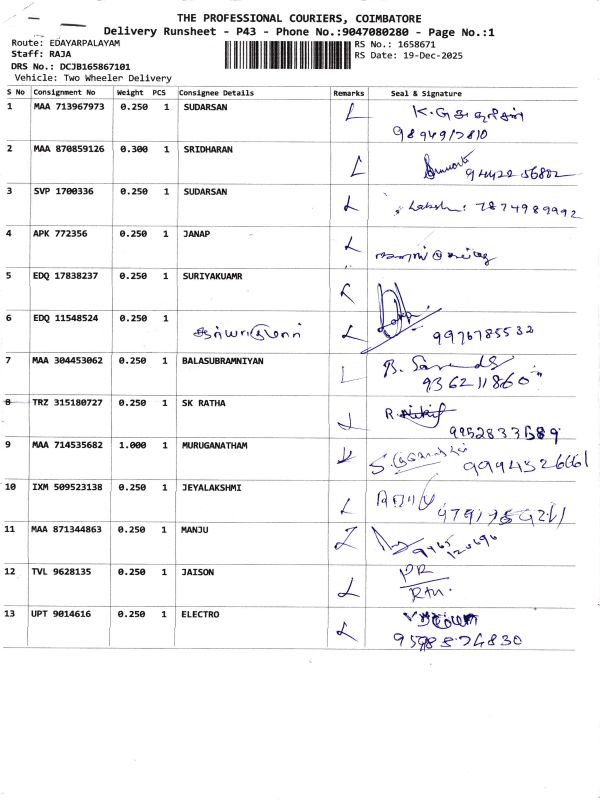 THE PROFESSIONAL COURIERS, COIMBATORE
Delivery Runsheet - P43 - Phone No.:9047080280 - Page No.:1
Route: EDAYARPALAYAM
Staff: RAJA
DRS No.: DCJB165867101
Vehicle: Two Wheeler Delivery
RS No.: 1658671
RS Date: 19-Dec-2025
S No Consignment No Weight PCS Consignee Details Remarks Seal & Signature
1 MAA 713967973 0.250 1 SUDARSAN
9894917810
2 MAA 870859126 0.300 1 SRIDHARAN
94422 56802
3 SVP 1700336 0.250 1 SUDARSAN Lakshmi 7874989992
4 APK 772356 0.250 1 JANAP
5 EDQ 17838237 0.250 1 SURIYAKUAMR
6 EDQ 11548524 0.250 1
9976785532
7 MAA 304453062 0.250 1 BALASUBRAMNIYAN
936211860
8 TRZ 315180727 0.250 1 SK RATHA
9952833689
9 MAA 714535682 1.000 1 MURUGANATHAM 9994326661
10 IXM 509523138 0.250 1 JEYALAKSHMI
11 MAA 871344863 0.250 1 MANJU
9965
120696
12 TVL 9628135 0.250 1 JAISON
13 UPT 9014616 0.250 1 ELECTRO